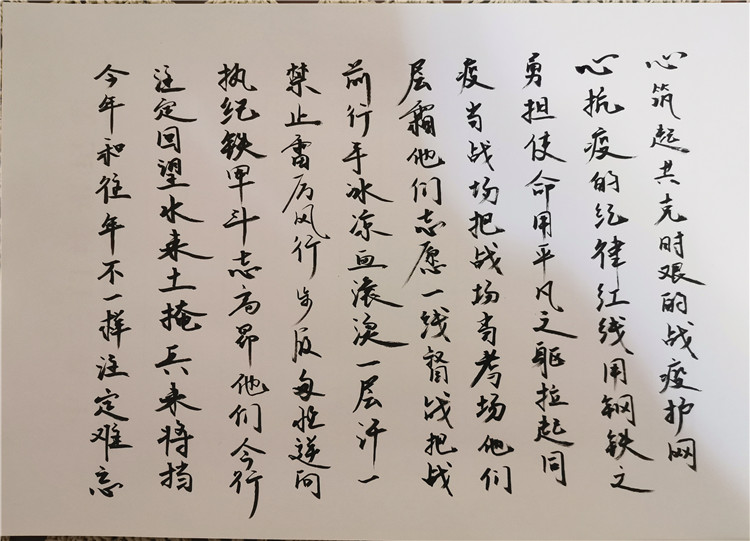 今年和往年不一样注定难忘
注定回望水来土掩兵来将挡
执纪铁军斗志高昂他们令行
禁止雷厉风行步履匆忙逆向
前行手冰凉血滚烫一层汗一
层霜他们志愿一线督战把战
疫当战场把战场当考场他们
勇担使命用平凡之躯拉起同
心抗疫的纪律红线用钢铁之
心筑起共克时艰的战疫护网